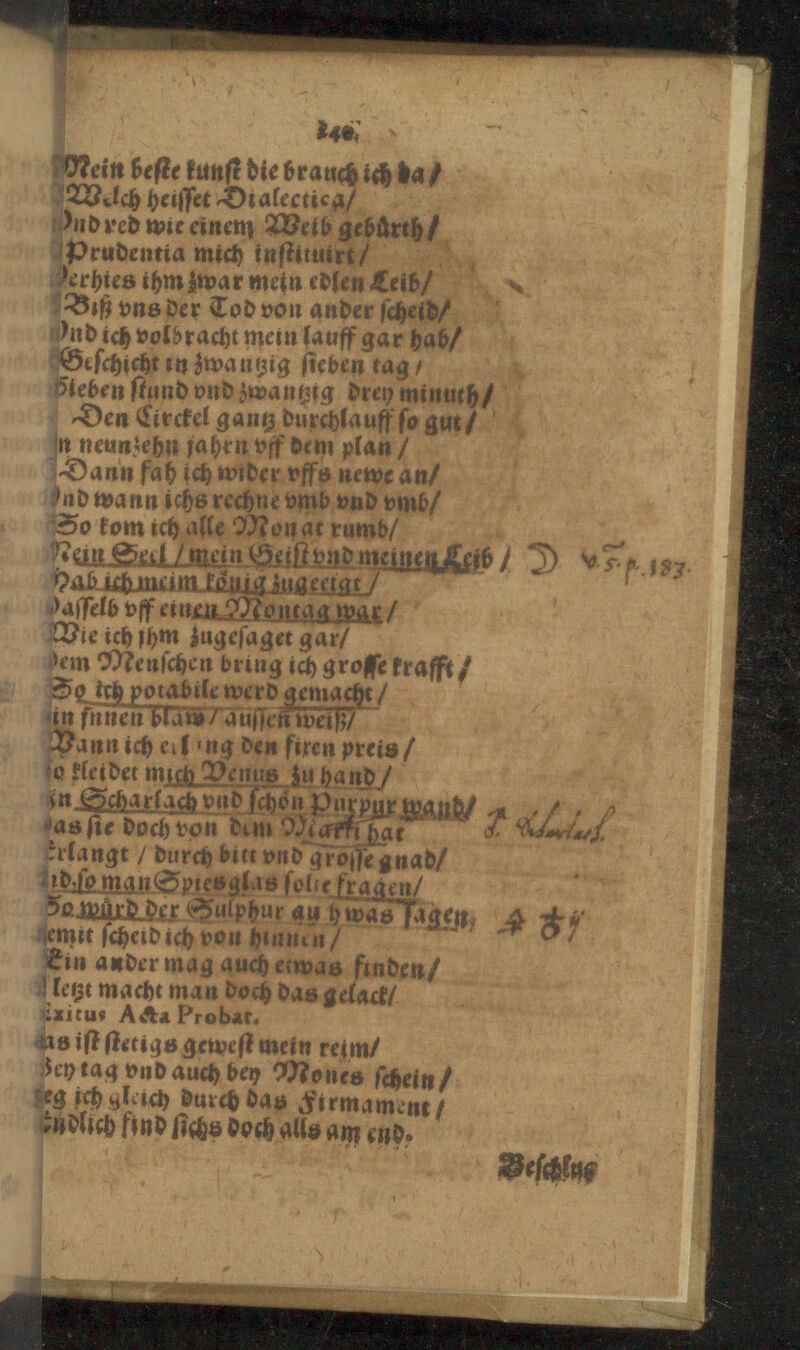 240.
Mein beste kunst die brauch ich da /
Welch heisset Dialectica /
Vnd red wie einem Weib gebürth /
Prudentia mich instituirt /
Verhies ihm zwar mein edlen Leib /
Biß vns der Tod von ander scheid /
Vnd ich volbracht mein lauff gar hab /
Geschicht in zwantzig sieben tag /
Sieben stund vnd zwantzig drey minuth /
Den Circkel gantz durchlauff so gut /
In neunzehn jahrn vff dem plan /
Dann fah ich wider vffs newe an /
Vnd wann ichs rechne vmb vnd vmb /
So kom ich alle Monat rumb /
Mein Seel / mein Geist vnd meinen Leib / ☽ v. F. p. 183.
Hab ich meim könig zugeeigt /
Dasselb vff einen Montag war /
Wie ich jhm zugesaget gar /
Dem Menschen bring ich grosse krafft /
So ich potabile werd gemacht /
in innen blaw / aussen weiß /
Wann ich erlang den fixen preis /
So kleidet mich Venus zu hand /
In Scharlach vnd schön Purpur wand /
das sie doch von dem Marti hat
Erlangt / durch bitt vnd grosse gnad /
so man Spiesglas solte fragen /
So würd der Sulphur auch was sagen,
hiemit scheid ich von hinnen /
Ein ander mag auch etwas finden /
letzt macht man doch das gelack /
Exitus Acta Probat.
das ist stetigs gewest mein reim /
Bey tag vnd auch bey Mones schein /
leg ich gleich durch das Firmament /
Endlich find sichs doch alls am end.
Beschlus